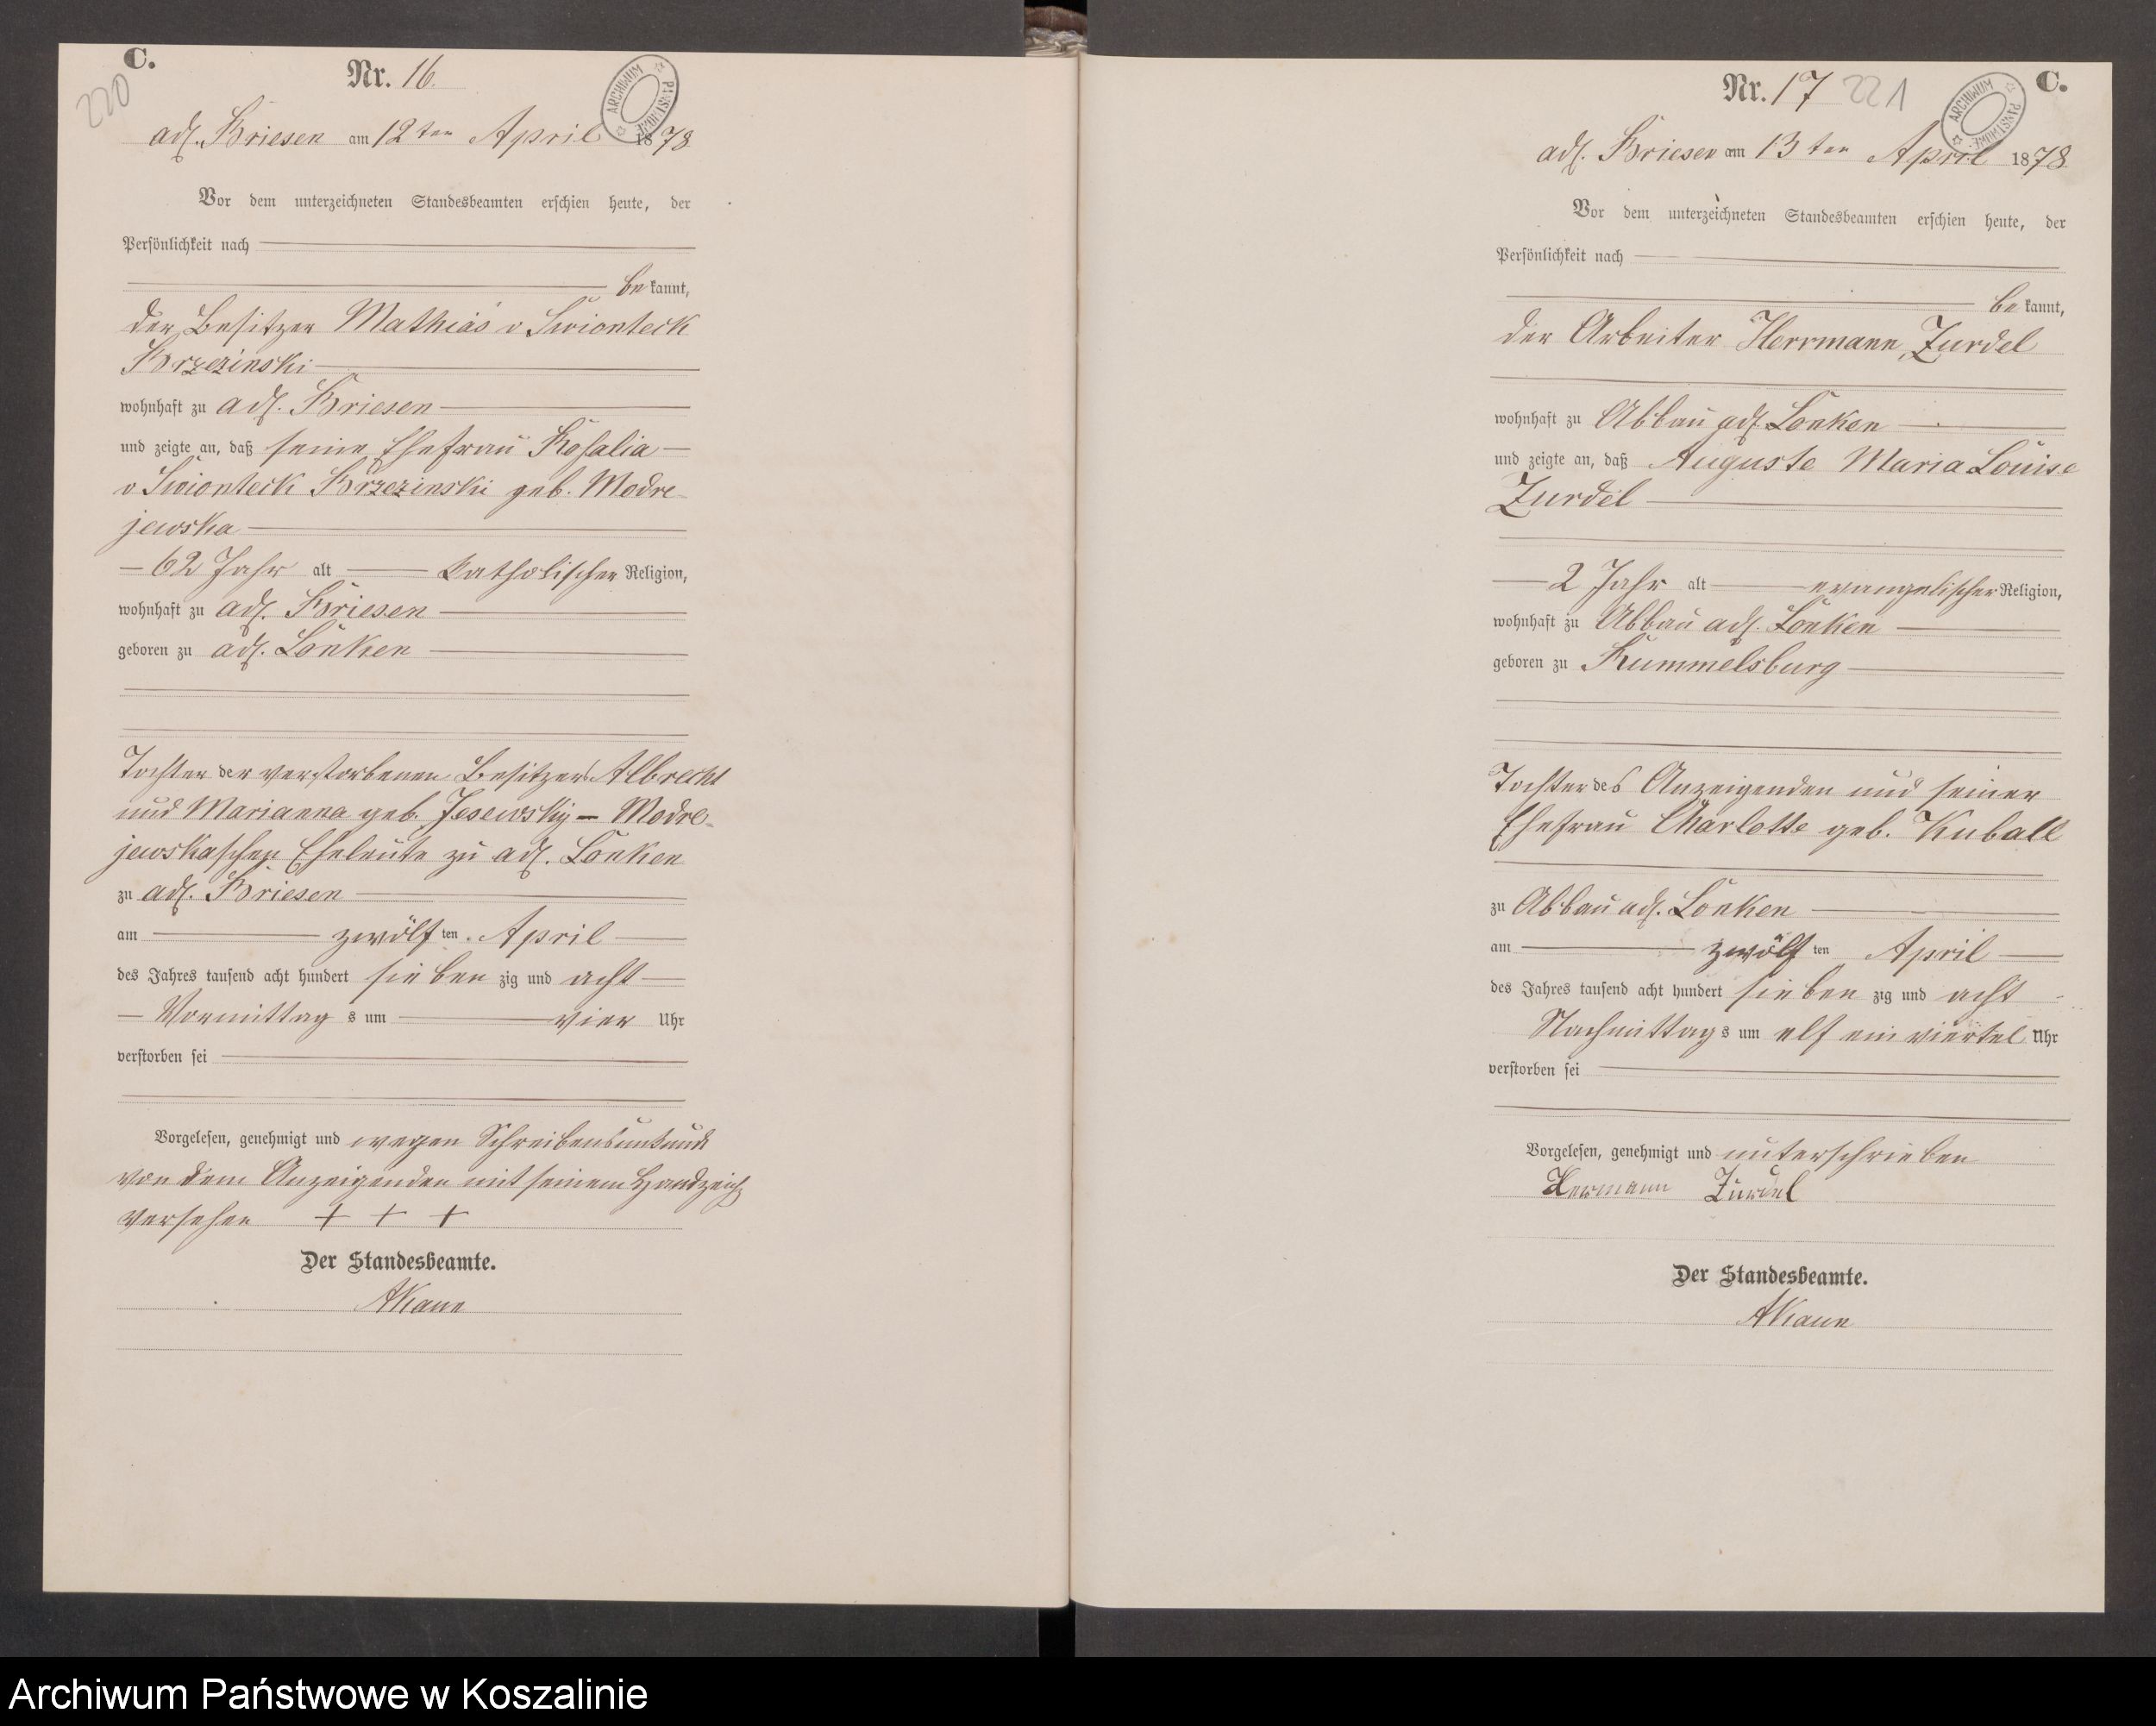 C.
220
Nr. 16.
ARCHIWUM PAŃSTWOWE
adl. Briesen am 12ten April 1878
Vor dem unterzeichneten Standesbeamten erschien heute, der
Persönlichkeit nach
be kannt,
der Besitzer Mathias v Swionteck
Brzezinski
wohnhaft zu adl. Briesen
und zeigte an, daß seine Ehefrau Rosalia
v Swionteck Brzezinski geb. Modre-
jewska
62 Jahr alt katholischer Religion,
wohnhaft zu adl. Briesen
geboren zu adl. Lonken
Tochter der verstorbenen Besitzer Albrecht
und Marianna geb. Jesewsky - Modre-
jewskaschen Eheleute zu adl. Lonken
zu adl. Briesen
am zwölf ten April
des Jahres tausend acht hundert sieben zig und acht
Vormittag s um vier Uhr
verstorben sei
Vorgelesen, genehmigt und wegen Schreibensunkunde
von dem Anzeigenden mit seinem Handzeich
versehen + + +
Der Standesbeamte.
AKane
Nr. 17 221
C.
ARCHIWUM PAŃSTWOWE
adl. Briesen am 13ten April 1878
Vor dem unterzeichneten Standesbeamten erschien heute, der
Persönlichkeit nach
be kannt,
der Arbeiter Herrmann Zurdel
wohnhaft zu Abbau adl. Lonken
und zeigte an, daß Auguste Maria Louise
Zurdel
2 Jahr alt evangelischer Religion,
wohnhaft zu Abbau adl. Lonken
geboren zu Rummelsburg
Tochter des Anzeigenden und seiner
Ehefrau Charlotte geb. Kuball
zu Abbau adl. Lonken
am zwölf ten April
des Jahres tausend acht hundert sieben zig und acht
Nachmittag s um elf ein viertel Uhr
verstorben sei
Vorgelesen, genehmigt und unterschrieben
Hermann Zurdel
Der Standesbeamte.
AKane
Archiwum Państwowe w Koszalinie